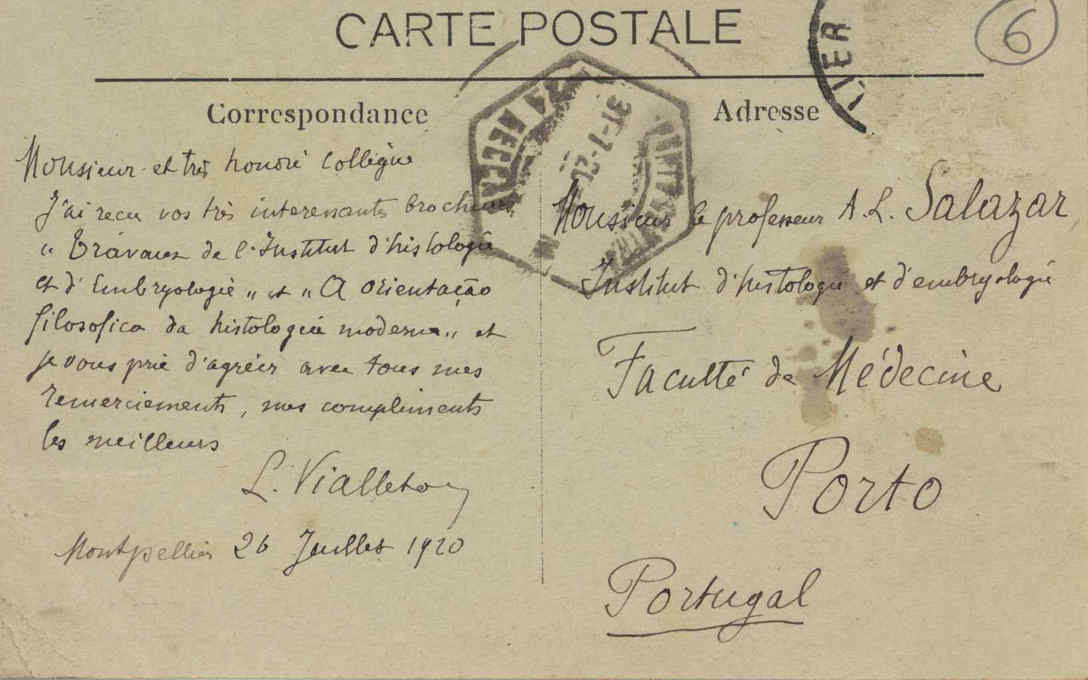 CARTE POSTALE
6
IER
Correspondance
Adresse
31-7-20
Monsieur et très honoré collègue
J'ai reçu vos très interessants brochures
"Travaux de l'Institut d'histologie
et d'Embryologie" et "A orientação
filosofica da histologia moderna" et
je vous prie d'agréer avec tous mes
remerciements, mes compliments
les meilleurs
L. Vialleton
Montpellier 26 Juillet 1920
Monsieur le professeur A. L. Salazar
Institut d'histologie et d'embryologie
Faculté de Médecine
Porto
Portugal